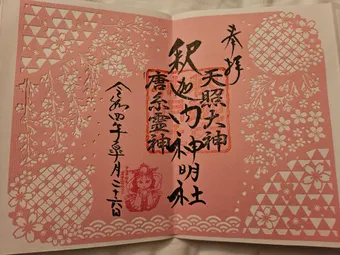 奉拝
天照大神
釈迦内神明社
唐糸霊神
令和四年皐月二十六日